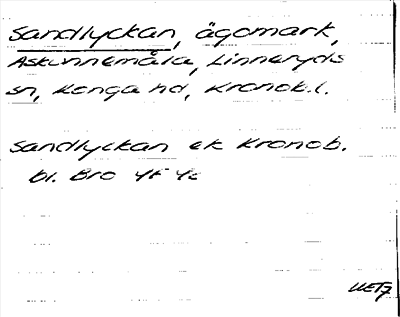 Sandlyckan, ägomark,
Askunnemåla, Linneryds
sn, Konga hd, Kronob. l.
Sandlyckan ek Kronob.
bl. Bro 4F 4c